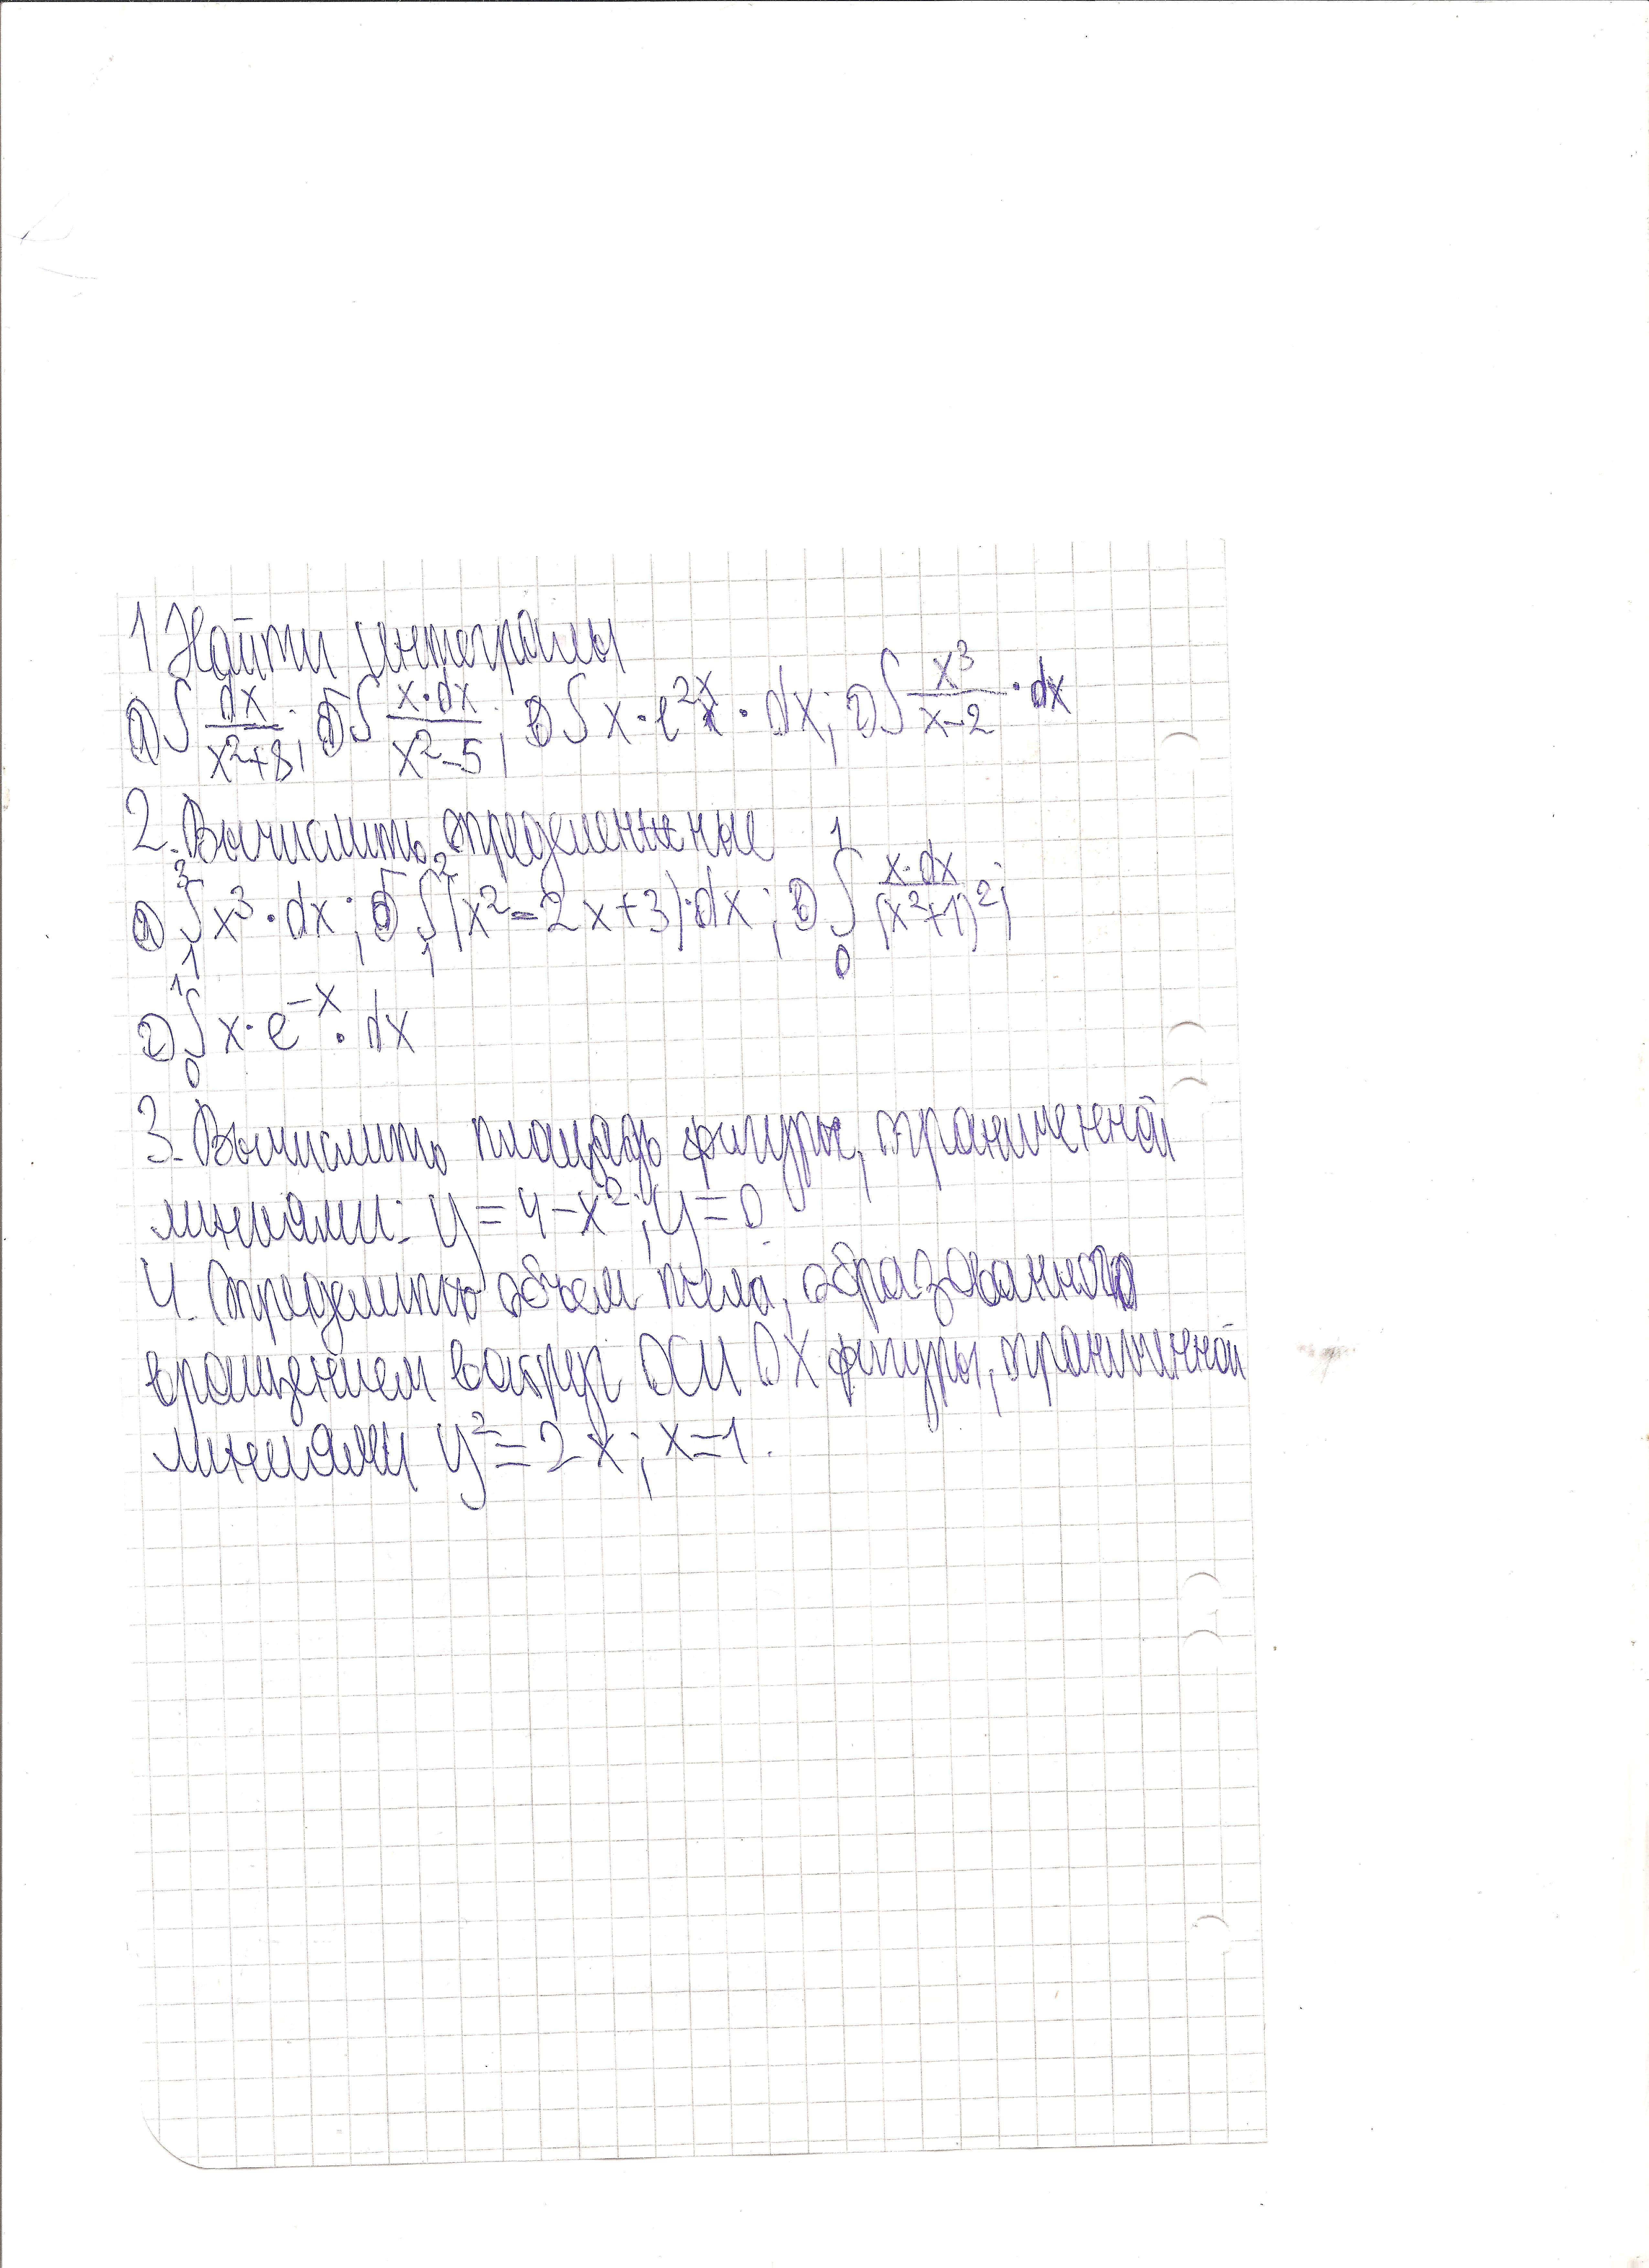 1 Найти интегралы
а) ∫ dx/(x²+8); б) ∫ x·dx/(x²-5); в) ∫ x·e^(2x)·dx; г) ∫ x³/(x-2)·dx
2. Вычислить определенные
а) ∫₁³ x³·dx; б) ∫₁² (x²-2x+3)·dx; в) ∫₀¹ x·dx/(x²+1)²;
г) ∫₀¹ x·e^(-x)·dx
3. Вычислить площадь фигуры, ограниченной
линиями: y=4-x²; y=0
4. Определить объем тела, образованного
вращением вокруг оси OX фигуры, ограниченной
линиями y²=2x; x=1.